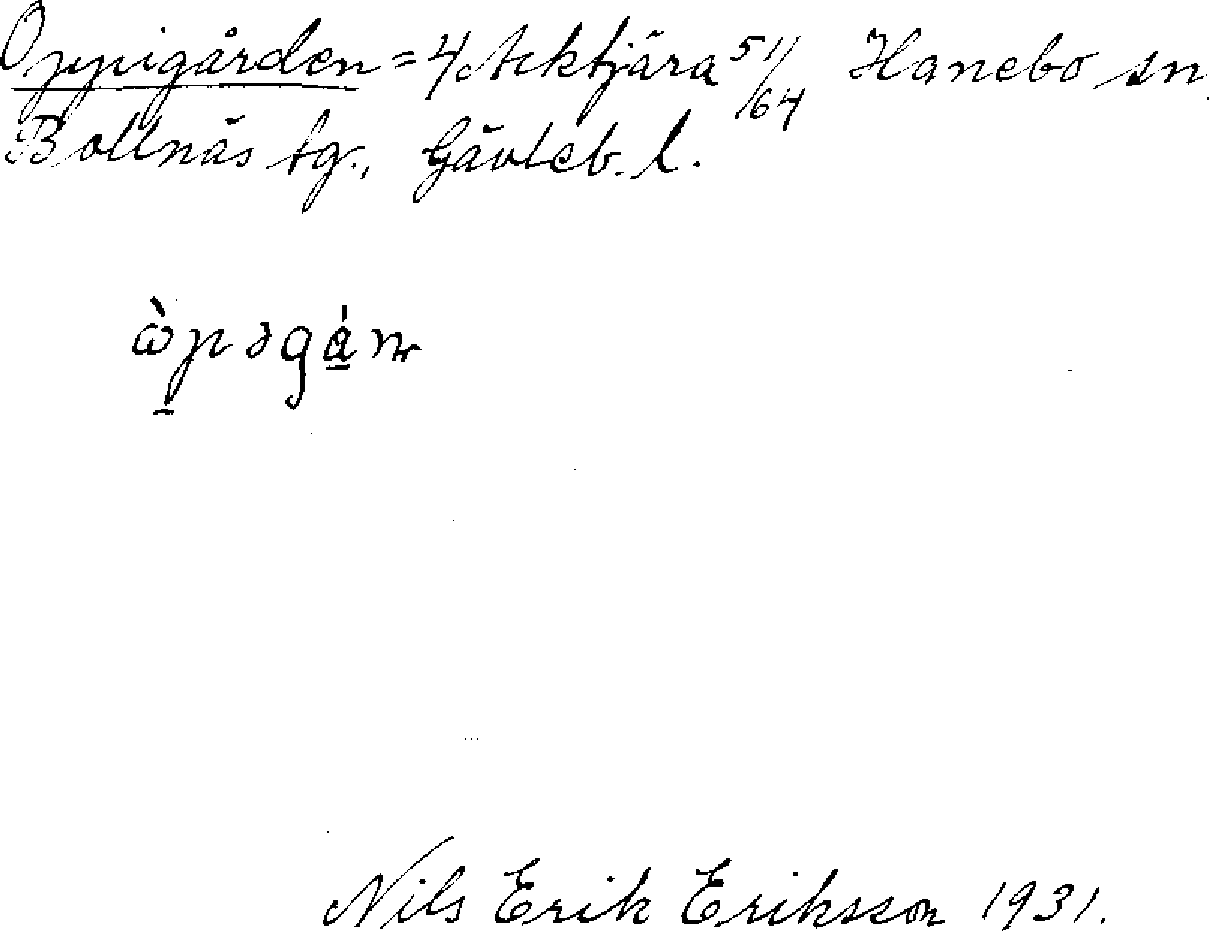 Oppigården = 4 Acktjära 5 11/64 Hanebo sn.
Bollnäs tg., Gävleb. l.
Nils Erik Eriksson 1931.